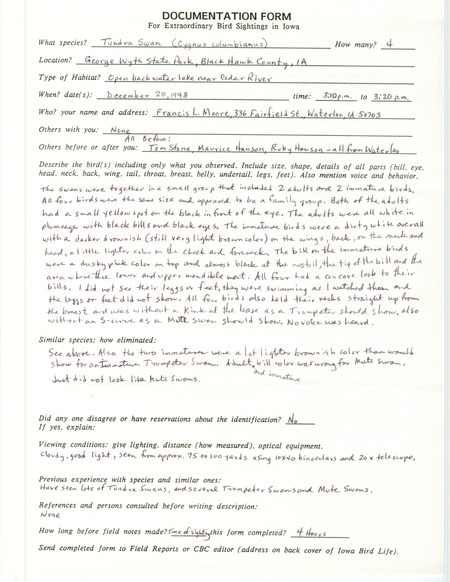 DOCUMENTATION FORM
For Extraordinary Bird Sightings in Iowa
What species? Tundra Swan (Cygnus columbianus) How many? 4
Location? George Wyth State Park, Black Hawk County, IA
Type of Habitat? Open backwater lake near Cedar River
When? date(s): December 20, 1998 time: 3:10 p.m. to 3:20 p.m.
Who? your name and address: Francis L. Moore, 336 Fairfield St, Waterloo, IA 50703
Others with you: None
All Before:
Others before or after you: Tom Stone, Maurice Hanson, Ruby Hanson - all from Waterloo
Describe the bird(s) including only what you observed. Include size, shape, details of all parts (bill, eye,
head, neck, back, wing, tail, throat, breast, belly, undertail, legs, feet). Also mention voice and behavior.
The swans were together in a small group that included 2 adults and 2 immature birds.
All four birds were the same size and appeared to be a family group. Both of the adults
had a small yellow spot on the black in front of the eye. The adults were all white in
plumage with black bills and black eyes. The immature birds were a dirty white overall
with a darker brownish (still very light brown color) on the wings, back, on the neck and
head, a little lighter color on the cheek and foreneck. The bill on the immature birds
were a dusky pink color on top and almost black at the nostril, the tip of the bill and the
area where the lower and upper mandible meet. All four had a concave look to their
bills. I did not see their legs or feet, they were swimming as I watched them and
the legs or feet did not show. All four birds also held their necks straight up from
the breast and was without a kink at the base as a Trumpeter should show, also
without an S-curve as a Mute Swan should show. No voice was heard.
Similar species: how eliminated:
See above. Also the two immatures were a lot lighter brownish color than would
show for an immature Trumpeter Swan. Adult, bill color was wrong for Mute Swan.
and immature
Just did not look like Mute Swans.
Did any one disagree or have reservations about the identification? No
If yes, explain:
Viewing conditions: give lighting, distance (how measured), optical equipment.
Cloudy, good light, seen from approx. 75 to 100 yards using 10x40 binoculars and 20x telescope.
Previous experience with species and similar ones:
Have seen lots of Tundra Swans, and several Trumpeter Swans and Mute Swans.
References and persons consulted before writing description:
None
How long before field notes made? Time of sighting this form completed? 4 Hours
Send completed form to Field Reports or CBC editor (address on back cover of Iowa Bird Life).